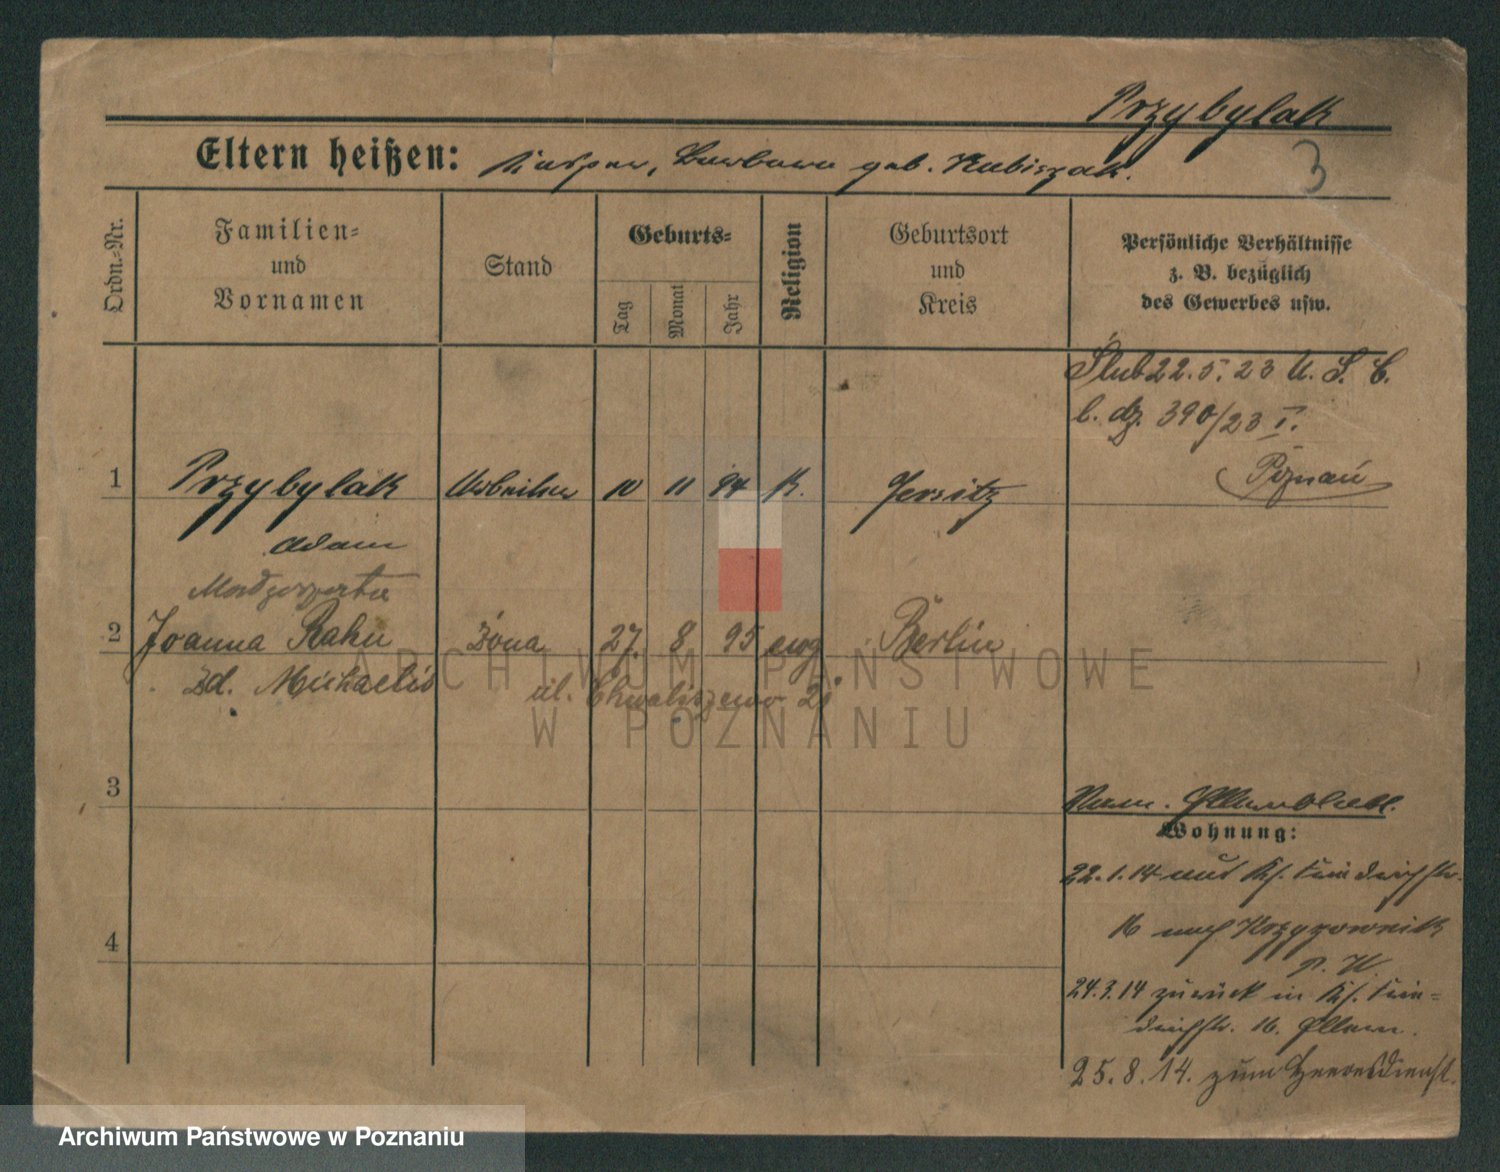 Przybylak
Eltern heißen: Kasper, Barbara geb. Kubiszak.
3
Ordn.-Nr.
Familien-
und
Vornamen
Stand
Geburts-
Tag
Monat
Jahr
Religion
Geburtsort
und
Kreis
Persönliche Verhältnisse
z. B. bezüglich
des Gewerbes usw.
Ślub 22.5.23 U. S. C.
l. dz. 390/23 I.
Poznań
1 Przybylak Arbeiter 10 11 94 K. Jersitz
Adam
Małgorzata
2 Joanna Rahn żona 27. 8 95 ewg Berlin
zd. Michaelis ul. Chwaliszewo
ARCHIWUM PAŃSTWOWE
W POZNANIU
3
Elternblatt.
Wohnung:
22.1.14 aus
16 nach Krzyżownik
P. W.
24.3.14 zurück in
16. Eltern.
25.8.14. zum Heeresdienst.
4
Archiwum Państwowe w Poznaniu